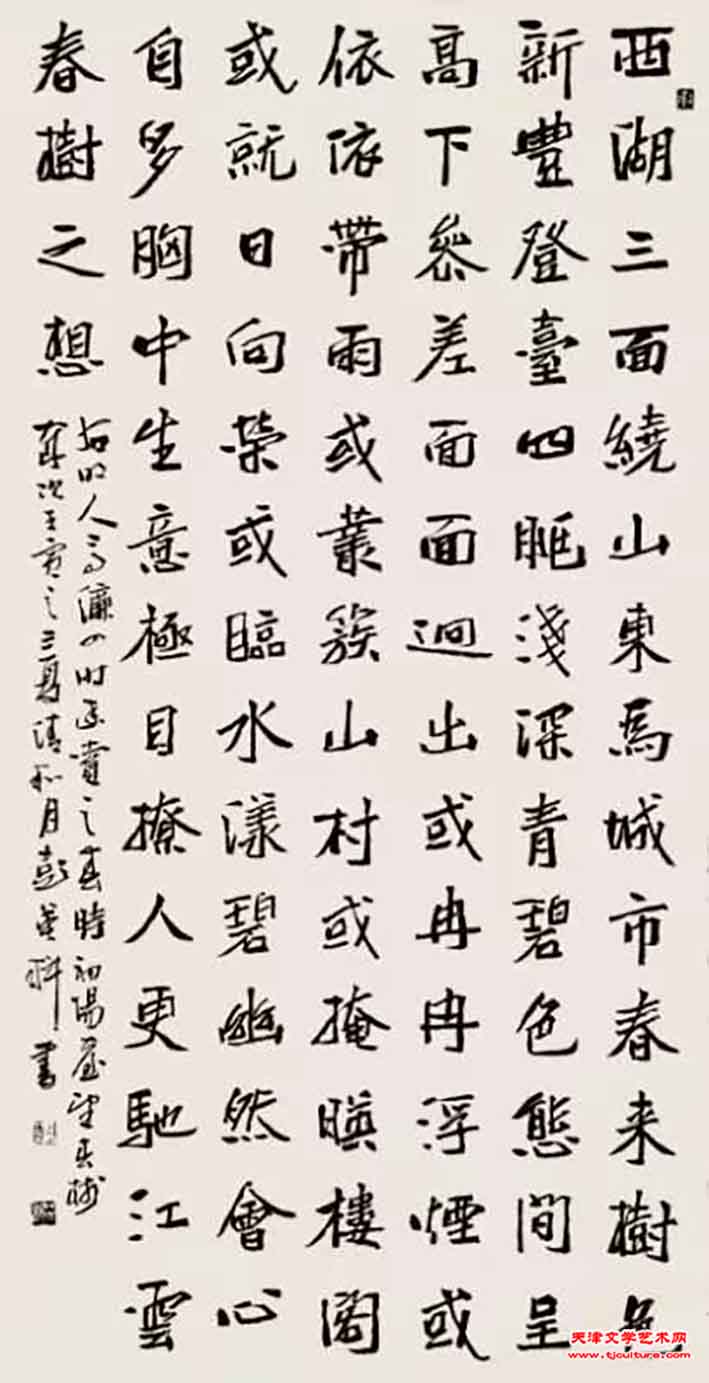 西湖三面繞山東為城市春来樹色
新豐登臺四眺淺深青碧色態間呈
高下参差面面逈出或冉冉浮煙或
依依帶雨或叢簇山村或掩暎樓閣
或就日向榮或臨水漾碧幽然會心
自多胸中生意極目撩人更馳江雲
春樹之想
右明人高濂四时幽賞之春時初陽臺望春樹
歲次壬寅之三夏清和月彭英科書
天津文学艺术网
www.tjculture.com